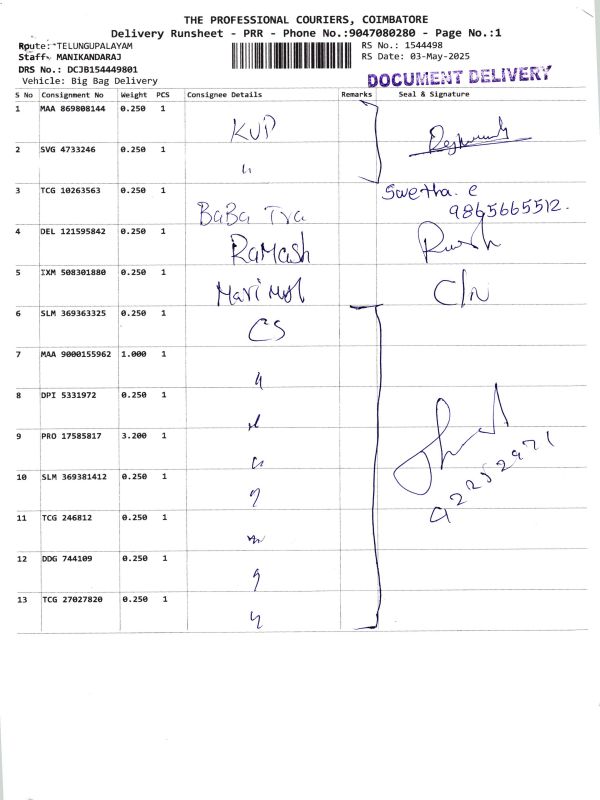 THE PROFESSIONAL COURIERS, COIMBATORE
Delivery Runsheet - PRR - Phone No.:9047080280 - Page No.:1
Route: TELUNGUPALAYAM
RS No.: 1544498
Staff: MANIKANDARAJ
RS Date: 03-May-2025
DRS No.: DCJB154449801
DOCUMENT DELIVERY
Vehicle: Big Bag Delivery
S No Consignment No Weight PCS Consignee Details Remarks Seal & Signature
1 MAA 869808144 0.250 1 KVP
2 SVG 4733246 0.250 1 "
3 TCG 10263563 0.250 1 BaBa Tra Swetha. e
9865665512.
4 DEL 121595842 0.250 1 RaMash
5 IXM 508301880 0.250 1 C/N
6 SLM 369363325 0.250 1 CS
7 MAA 9000155962 1.000 1 "
8 DPI 5331972 0.250 1 "
9 PRO 17585817 3.200 1 "
10 SLM 369381412 0.250 1 "
11 TCG 246812 0.250 1 "
12 DDG 744109 0.250 1 "
13 TCG 27027820 0.250 1 "